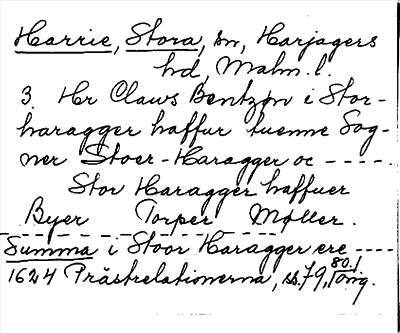 Harrie, Stora, sn, Harjagers
hd, Malm. l.
3. Hr Claws Bentzøn i Stor-
haragger haffur tuenne Sog-
ner Stoer-Haragger oc - - - - .
Stor Haragger haffuer
Byer Torper Møller.
Summa i Stoor Haragger ere - - - -
1624 Prästrelationerna, ss. 79, 80. / orig.